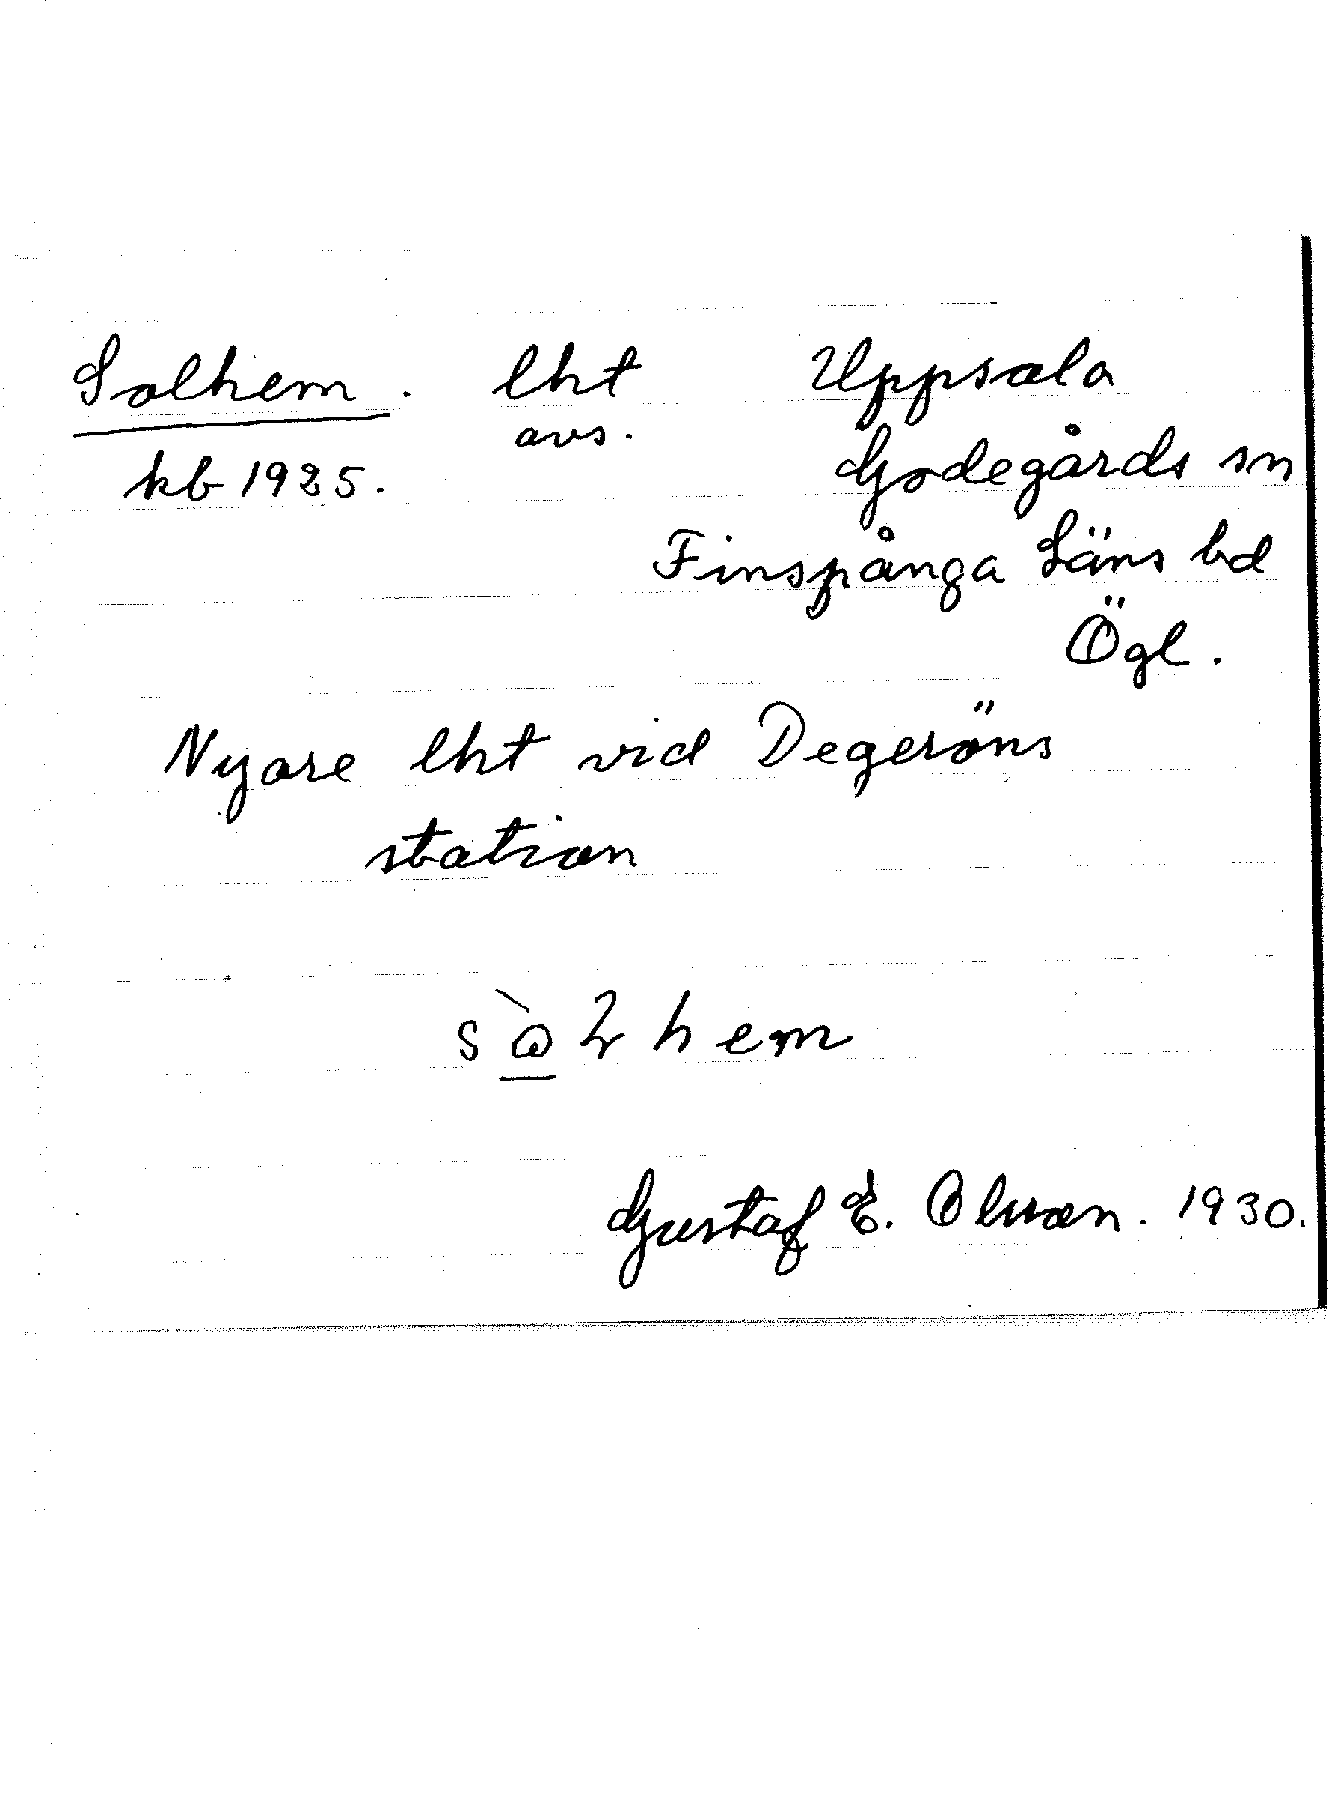 Solhem. lht Uppsala
avs.
kb 1925. Godegårds sn
Finspånga Läns hd
Ögl.
Nyare lht vid Degeröns
station
hem
Gustaf E. Olsson. 1930.